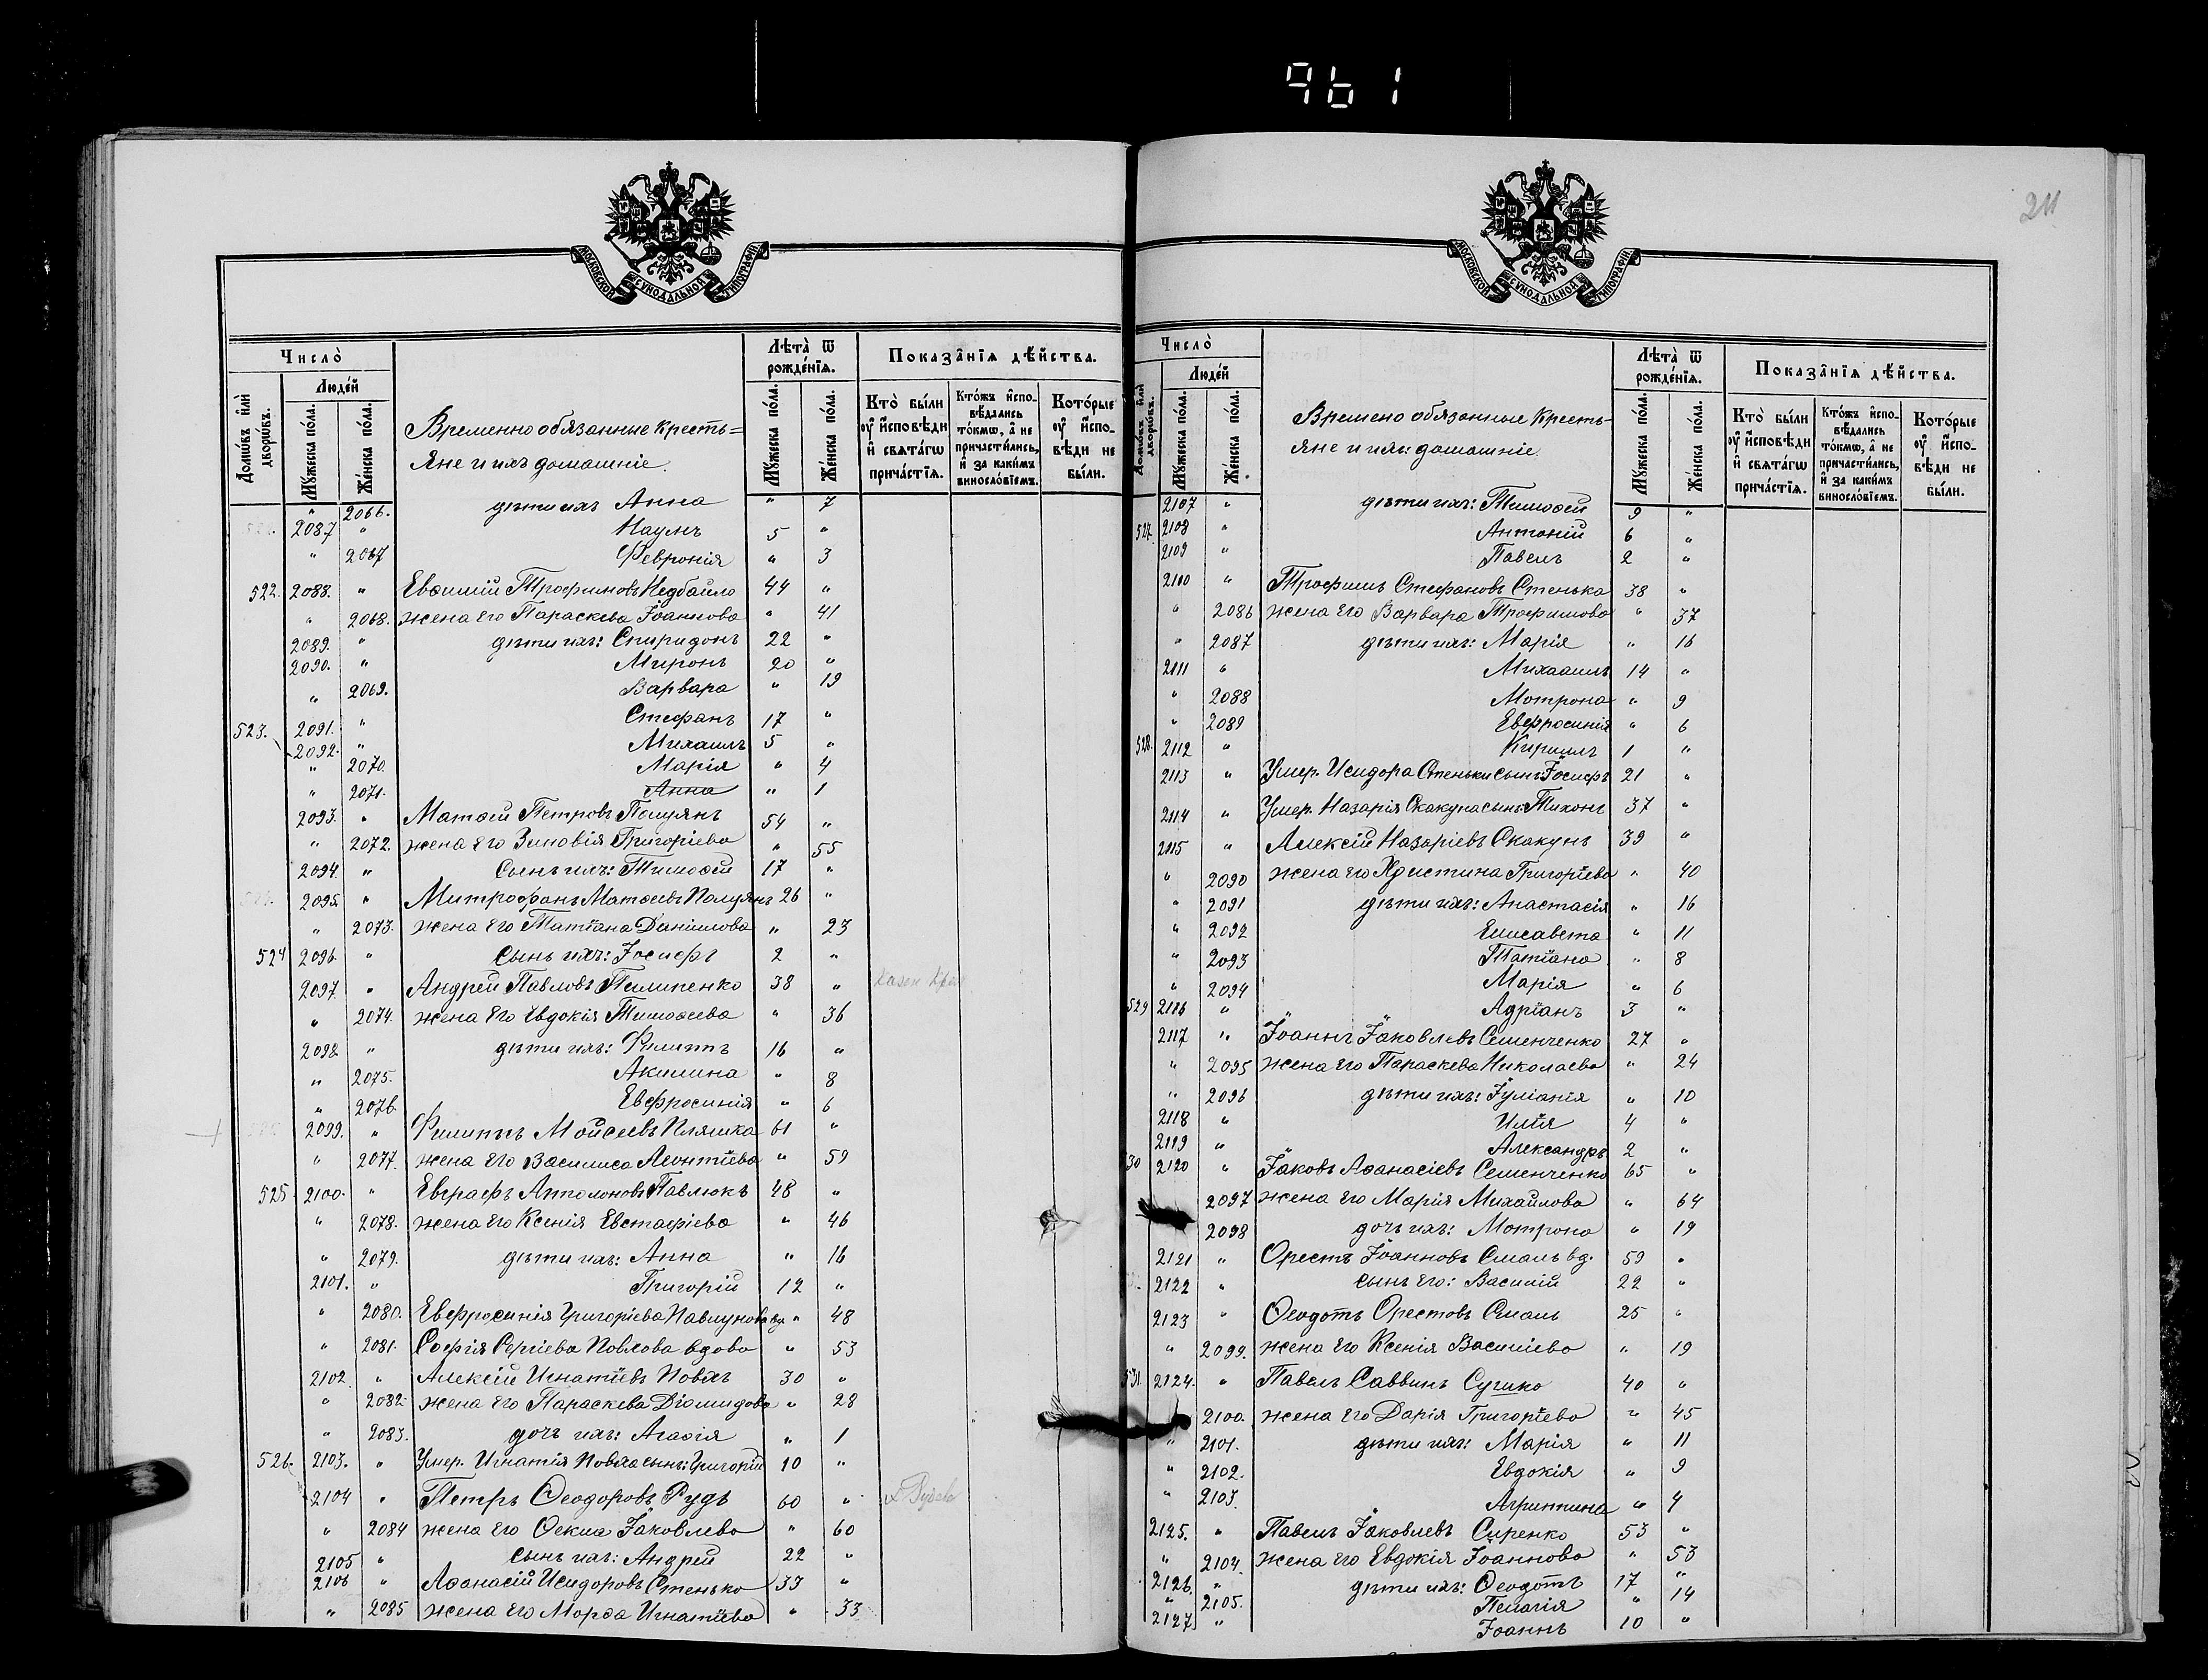 961
211
МОСКОВСКОЙ СУНОДАЛЬНОЙ ТИПОГРАФІИ
Число̀
Домѡ́въ и҆лѝ дворѡ́въ.
Люде́й
Мꙋ́жеска по́ла.
Же́нска по́ла.
Временно обязанные кресть=
яне и ихъ домашніе.
Лѣта̀ ѿ рожде́нїѧ.
Мꙋ́жеска по́ла.
Же́нска по́ла.
Показа̑нїѧ дѣ́йства.
Кто̀ бы́ли оу҆ и҆сповѣ́ди и҆ свѧта́гѡ прича́стїѧ.
Кто́жъ и҆сповѣ́дались то́кмѡ, а҆ не причасти́лись, и҆ за каки́мъ винносло́вїемъ.
Кото́рые оу҆ и҆сповѣ́ди не бы́ли.
" 2066. дѣти ихъ Анна " 7
2087 " Наумъ 5 "
" 2067 Февронія " 3
522. 2088. " Евѳимій Трофимовъ Недбайло 44 "
" 2068. жена его Параскева Іоаннова " 41
2089. " дѣти ихъ: Спиридонъ 22 "
2090. " Миронъ 20 "
" 2069. Варвара " 19
523. 2091. " Стефанъ 17 "
2092. " Михаилъ 5 "
" 2070. Марія " 4
" 2071. Анна " 1
2093. " Матѳей Петровъ Полулянъ 54 "
" 2072. жена его Зиновія Григоріева " 55
2094. " Сынъ ихъ: Тимоѳей 17 "
2095. " Митрофанъ Матѳеевъ Полулянъ 26 "
" 2073. жена его Татіана Даніилова " 23
524 2096. " Сынъ ихъ: Іосифъ 2 "
2097. " Андрей Павловъ Пилипенко 38 "
" 2074. жена его Евдокія Тимоѳеева " 36
2098 " дѣти ихъ: Филиппъ 16 "
" 2075. Акилина " 8
" 2076. Евфросинія " 6
2099. " Филиппъ Мойсеевъ Пляшка 61 "
" 2077. жена его Василиса Леонтіева " 59
525. 2100. " Евграфъ Апполоновъ Павлюкъ 48 "
" 2078. жена его Ксенія Евстафіева " 46
" 2079. дѣти ихъ: Анна " 16
2101. " Григорій 12 "
" 2080. Евфросинія Григоріева Павлунова вд. " 48
" 2081. Софія Сергіева Повхова вдова " 53
2102. " Алексій Игнатіевъ Повхъ 30 "
" 2082. жена его Параскева Діомидова " 28
" 2083. дочь ихъ: Агафія " 1
526. 2103. " Умер. Игнатія Повха сынъ: Григорій 10 "
2104 " Петръ Ѳеодоровъ Рудь 60 "
" 2084 жена его Ѳекла Іаковлева " 60
2105 " сынъ ихъ: Андрей 22 "
2106 " Аѳанасій Исидоровъ Стенько 33 "
" 2085 жена его Марѳа Игнатіева " 33
МОСКОВСКОЙ СУНОДАЛЬНОЙ ТИПОГРАФІИ
Число̀
Домѡ́въ и҆лѝ дворѡ́въ.
Люде́й
Мꙋ́жеска по́ла.
Же́нска по́ла.
Времено обязанные кресть-
яне и ихъ домашніе.
Лѣта̀ ѿ рожде́нїѧ.
Мꙋ́жеска по́ла.
Же́нска по́ла.
Показа̑нїѧ дѣ́йства.
Кто̀ бы́ли оу҆ и҆сповѣ́ди и҆ свѧта́гѡ прича́стїѧ.
Кто́жъ и҆сповѣ́дались то́кмѡ, а҆ не причасти́лись, и҆ за каки́мъ винносло́вїемъ.
Кото́рые оу҆ и҆сповѣ́ди не бы́ли.
2107 " дѣти ихъ: Тимоѳей 9 "
527. 2108 " Антоній 6 "
2109 " Павелъ 2 "
2110 " Трофимъ Стефановъ Стенька 38 "
" 2086 жена его Варвара Трофимова " 37
" 2087 дѣти ихъ: Марія " 16
2111 " Михаилъ 14 "
" 2088 Мотрона " 9
" 2089 Евфросинія " 6
528. 2112 " Кириллъ 1 "
2113 " Умер. Исидора Стеньки сынъ Іосифъ 21 "
2114 " Умер. Назарія Скакуна сынъ Тихонъ 37 "
2115 " Алексій Назаріевъ Скакунъ 39 "
" 2090 жена его Христина Григоріева " 40
" 2091 дѣти ихъ: Анастасія " 16
" 2092 Елисавета " 11
" 2093 Татіана " 8
" 2094 Марія " 6
529 2116 " Адріанъ 3 "
2117 " Іоаннъ Іаковлевъ Семенченко 27 "
" 2095 жена его Параскева Николаева " 24
" 2096 дѣти ихъ: Іуліанія " 10
2118 " Илія 4 "
2119 " Александръ 2 "
30 2120 " Іаковъ Аѳанасіевъ Семенченко 65 "
2097 жена его Марія Михайлова " 64
2098 дочь ихъ: Мотрона " 19
2121 " Орестъ Іоанновъ Смаль вд. 59 "
2122 " сынъ его: Василій 22 "
2123 " Ѳеодотъ Орестовъ Смаль 25 "
" 2099. жена его Ксенія Василіева " 19
531. 2124. " Павелъ Саввинъ Сулико 40 "
2100. жена его Дарія Григоріева " 45
" 2101. дѣти ихъ: Марія " 11
" 2102. Евдокія " 9
" 2103. Агриппина " 4
2125. " Павелъ Іаковлевъ Сиренко 53 "
" 2104. жена его Евдокія Іоаннова " 53
2126. " дѣти ихъ: Ѳеодотъ 17 "
" 2105. Пелагія " 14
2127. " Іоаннъ 10 "